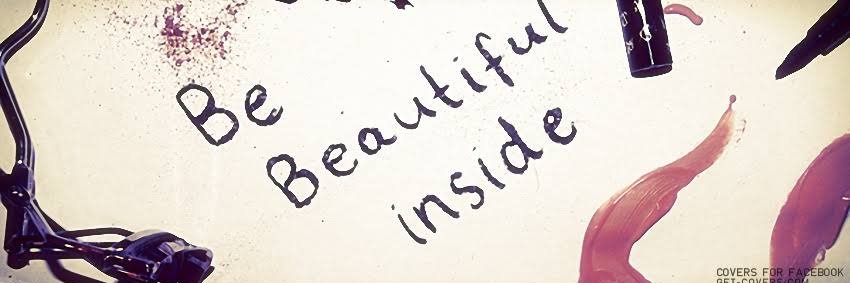 Be
Beautiful
inside
COVERS FOR FACEBOOK
GET-COVERS.COM